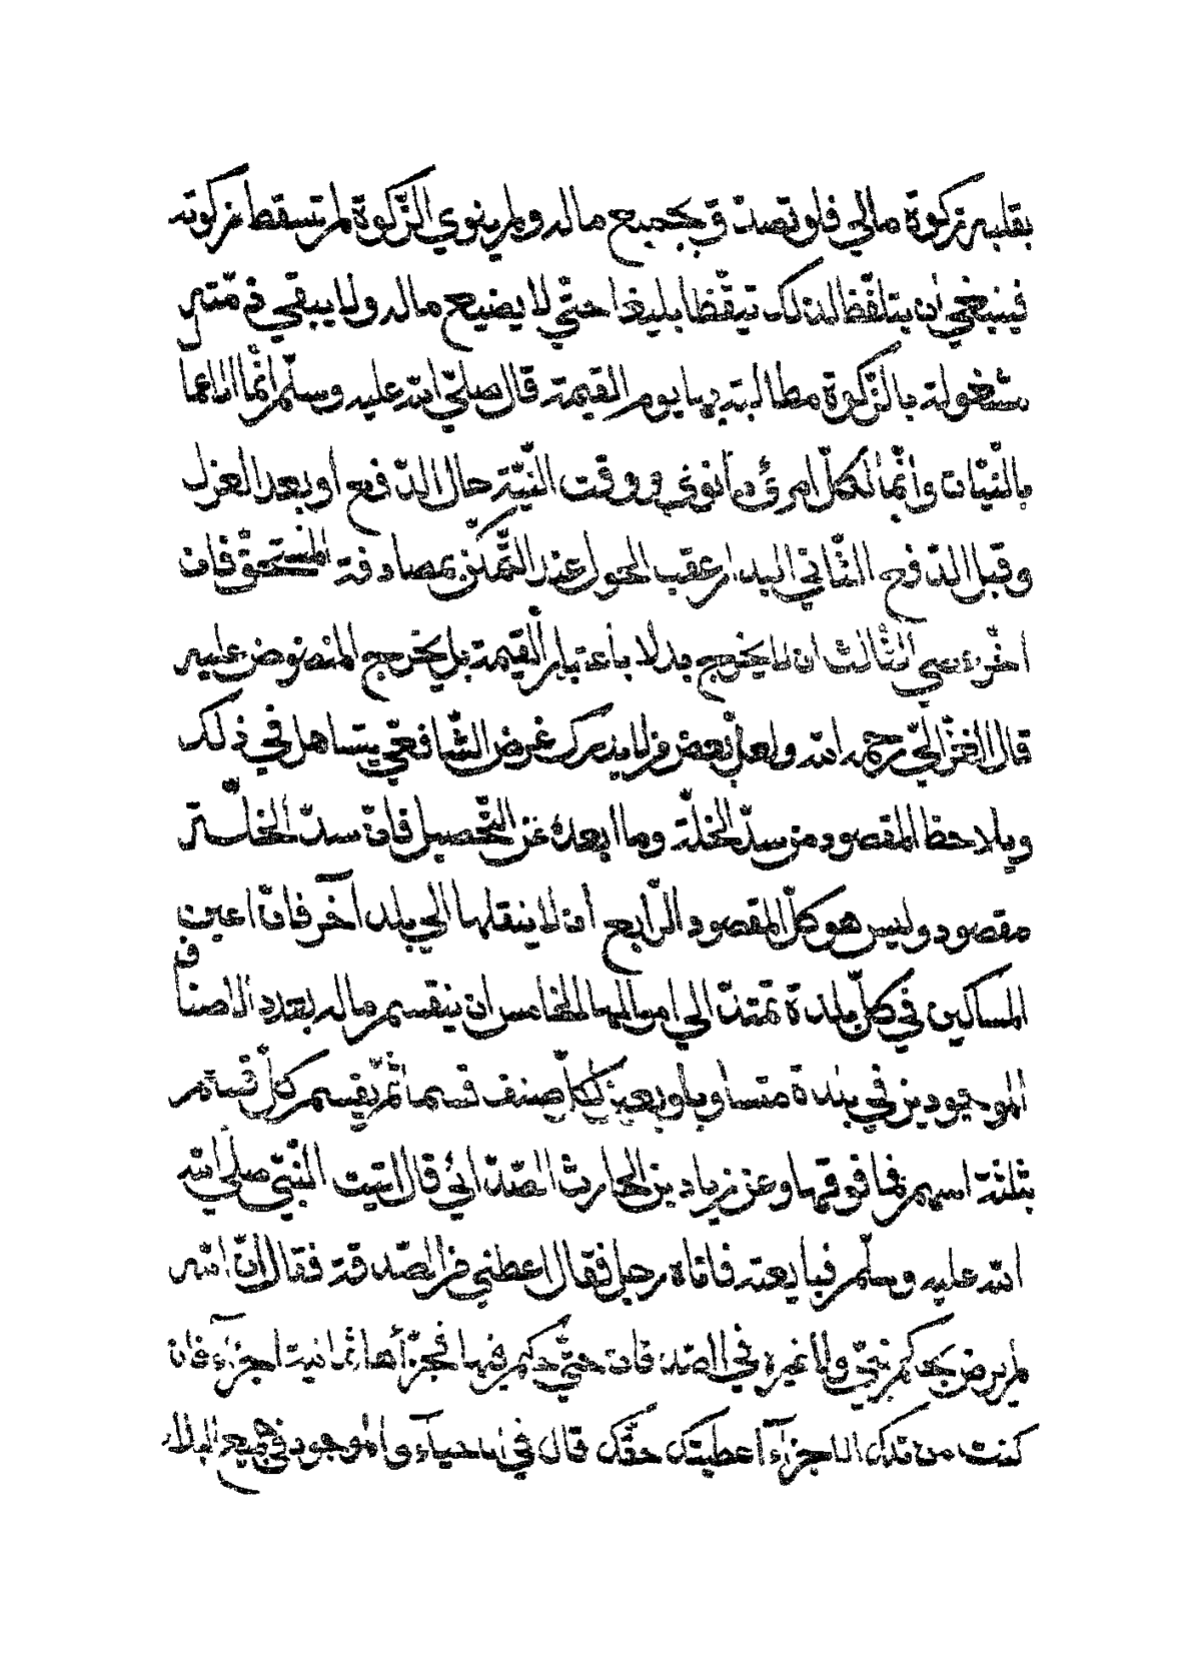 بقلبه زكوة مالي فلو تصدّق بجميع ماله ولم ينوي الزّكوة لم تسقط زكوته
فينبغي ان يتلفّظ لذلك تيقّظا بليغا حتّي لا يضيع ماله ولا يبقي ذمّته
مشغولة بالزّكوة مطالبة بها يوم القيمة قال صلّي الله عليه وسلّم انّما الاعما
بالنّيّات وانّما لكلّ امرئ مانوي ووقت النّيّة حال الدّفع او بعد العزل
وقبل الدّفع الثّاني البدار عقب الحول عند التّمكّن بمصادفة المستحقّ فان
اخّر عصي الثّالث ان لا يخرج بدلا باعتبار القيمة بل يخرج المنصوص عليه
قال الغزّالي رحمه الله ولعلّ بعض من لا يدرك غرض الشّافعيّ يتساهل في ذلك
ويلاحظ المقصود من سدّ الخلّة وما ابعده عن التّحصيل فانّ سدّ الخلّة
مقصود وليس هو كلّ المقصود الرّابع أن لا ينقلها الي بلد آخر فانّ اعين
المساكين في كلّ بلدة تمتدّ الي اموالها الخامس ان يقسم ماله بعدد الاصناف
الموجودين في بلدة متساويا ويعين لكلّ صنف قسما ثمّ يقسم كلّ قسم
بثلثة اسهم فما فوقها وعن زياد بن الحارث الصّدائي قال اتيت النّبيّ صلي الله
الله عليه وسلّم فبايعته فاتاه رجل فقال اعطني من الصّدقة فقال انّ الله
لم يرض بحكم نبيّ ولا غيره في الصّدقات حتّي حكم فيها فجزّأها ثمانية اجزآء فان
كنت من تلك الاجزآء اعطيتك حقّك قال في الاحيآء والموجود في جميع البلاد